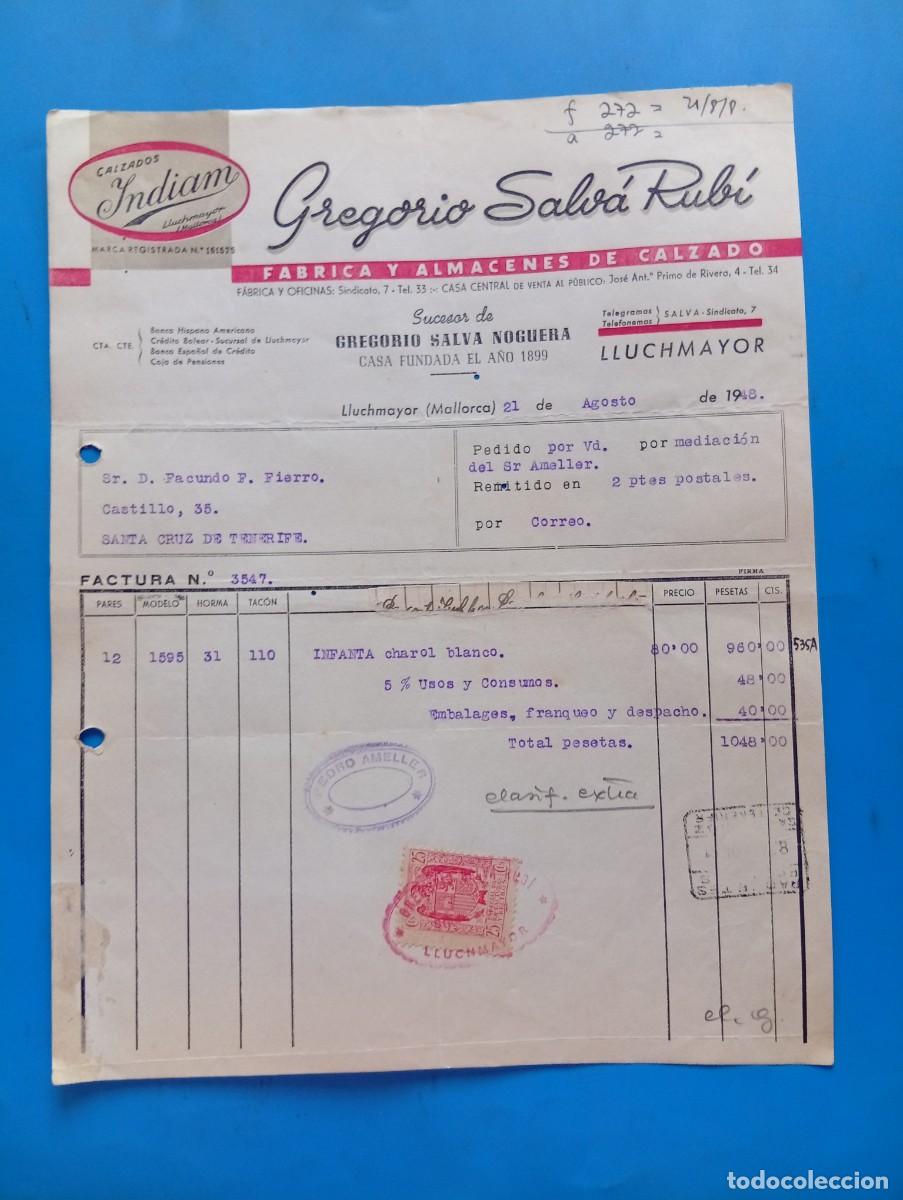 f 272 = 21/8/8.
a 272 =
CALZADOS
Indiam
Lluchmayor
(Mallorca)
MARCA REGISTRADA N.º 161575
Gregorio Salvá Rubí
FABRICA Y ALMACENES DE CALZADO
FÁBRICA Y OFICINAS: Sindicato, 7 - Tel. 33 :-: CASA CENTRAL DE VENTA AL PÚBLICO: José Ant.º Primo de Rivera, 4 - Tel. 34
Sucesor de
GREGORIO SALVA NOGUERA
CASA FUNDADA EL AÑO 1899
CTA. CTE.
Banco Hispano Americano
Crédito Balear - Sucursal de Lluchmayor
Banco Español de Crédito
Caja de Pensiones
Telegramas
Telefonemas
SALVA - Sindicato, 7
LLUCHMAYOR
Lluchmayor (Mallorca) 21 de Agosto de 1948.
Sr. D. Facundo F. Fierro.
Castillo, 35.
SANTA CRUZ DE TENERIFE.
Pedido por Vd. por mediación
del Sr Ameller.
Remitido en 2 ptes postales.
por Correo.
FACTURA N.º 3547.
FIRMA
PARES MODELO HORMA TACÓN PRECIO PESETAS CTS.
12 1595 31 110 INFANTA charol blanco. 80'00 960'00 535A
5 % Usos y Consumos. 48'00
Embalages, franqueo y despacho. 40'00
Total pesetas. 1048'00
PEDRO AMELLER
clasif. extra
25 25
LLUCHMAYOR
todocoleccion